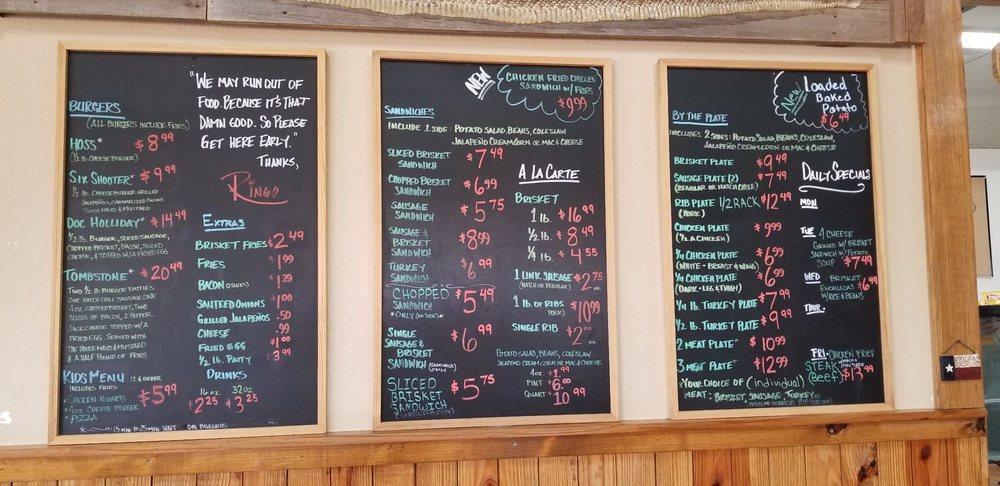 BURGERS
(ALL BURGERS INCLUDE FRIES)
HOSS* $8.99
(1/2 lb CHEESE BURGER)
SIX SHOOTER* $9.99
1/2 lb. CHEESEBURGER GRILLED
JALAPEÑOS, CARAMELIZED ONIONS
HOUSE MAYO & MUSTARD
DOC HOLLIDAY* $14.49
1/2 lb. BURGER, SLICED SAUSAGE,
CHOPPED BRISKET, BACON, SLICED
CHEESE, & TOPPED W/A FRIED EGG
TOMBSTONE* $20.49
TWO 1/2 lb BURGER PATTIES
ONE HATCH CHILI SAUSAGE LINK
4oz. CHOPPED BRISKET, TWO
SLICES OF BACON, 2 PEPPER
JACK CHEESE TOPPED W/A
FRIED EGG. SERVED WITH
THE HOUSE MAYO & MUSTARD
& A HALF POUND OF FRIES
KIDS MENU 12 & UNDER
INCLUDES FRIES $5.99
CHICKEN NUGGETS
4oz. CHEESE BURGER
PIZZA
* 15 MIN TO 25 MIN WAIT ON BURGERS
"WE MAY RUN OUT OF
FOOD. BECAUSE IT'S THAT
DAMN GOOD. SO PLEASE
GET HERE EARLY."
THANKS,
RINGO
EXTRAS
BRISKET FRIES $2.49
FRIES $1.99
BACON (2 SLICES) $1.29
SAUTEED ONIONS $1.00
GRILLED JALAPEÑOS .50
CHEESE .99
FRIED EGG $1.00
1/2 lb. PATTY $3.99
DRINKS
16 oz 32 oz
$2.25 $3.25
NEW
CHICKEN FRIED CHICKEN
SANDWICH W/ FRIES
$9.99
SANDWICHES
INCLUDE 1 SIDE: POTATO SALAD, BEANS, COLESLAW
JALAPEÑO CREAM CORN OR MAC & CHEESE
SLICED BRISKET SANDWICH $7.49
CHOPPED BRISKET SANDWICH $6.99
SAUSAGE SANDWICH $5.75
SAUSAGE & BRISKET SANDWICH $8.99
TURKEY SANDWICH $6.99
CHOPPED SANDWICH $5.49
*ONLY (NO SIDE)*
SINGLE SAUSAGE & BRISKET SANDWICH $6.99
(SANDWICH ONLY)
SLICED BRISKET SANDWICH $5.75
A LA CARTE
BRISKET
1 lb. $16.99
1/2 lb. $8.49
1/4 lb. $4.55
1 LINK SAUSAGE $2.75
(HATCH OR REGULAR)
1 lb OF RIBS $10.99
PORK
SINGLE RIB $2.00
POTATO SALAD, BEANS, COLESLAW
JALAPENO CREAM CORN OR MAC & CHEESE
4oz $1.99
PINT $6.00
QUART $10.99
New
Loaded
Baked
Potato
$6.49
BY THE PLATE
INCLUDES 2 SIDES: POTATO SALAD, BEANS, COLESLAW,
JALAPEÑO CREAM CORN OR MAC & CHEESE
BRISKET PLATE $9.49
SAUSAGE PLATE (2) $7.49
(REGULAR OR HATCH CHILE)
RIB PLATE 1/2 RACK $12.49
(PORK)
CHICKEN PLATE $9.99
(1/2 A CHICKEN)
1/4 CHICKEN PLATE $6.99
(WHITE - BREAST & WING)
1/4 CHICKEN PLATE $6.99
(DARK - LEG & THIGH)
1/4 lb TURKEY PLATE $7.99
1/2 lb. TURKEY PLATE $9.99
2 MEAT PLATE* $10.99
3 MEAT PLATE* $12.99
*YOUR CHOICE OF (individual)
MEAT: BRISKET, SAUSAGE, TURKEY OR
DAILY SPECIALS
MON
TUE 4 CHEESE
GRILLED W/ BRISKET
SANDWICH W/ POTATO
SOUP $7.49
WED BRISKET
ENCHILADAS $6.49
W/ RICE & BEANS
THUR.
FRI CHICKEN FRIED
STEAK
(Beef) $13.99